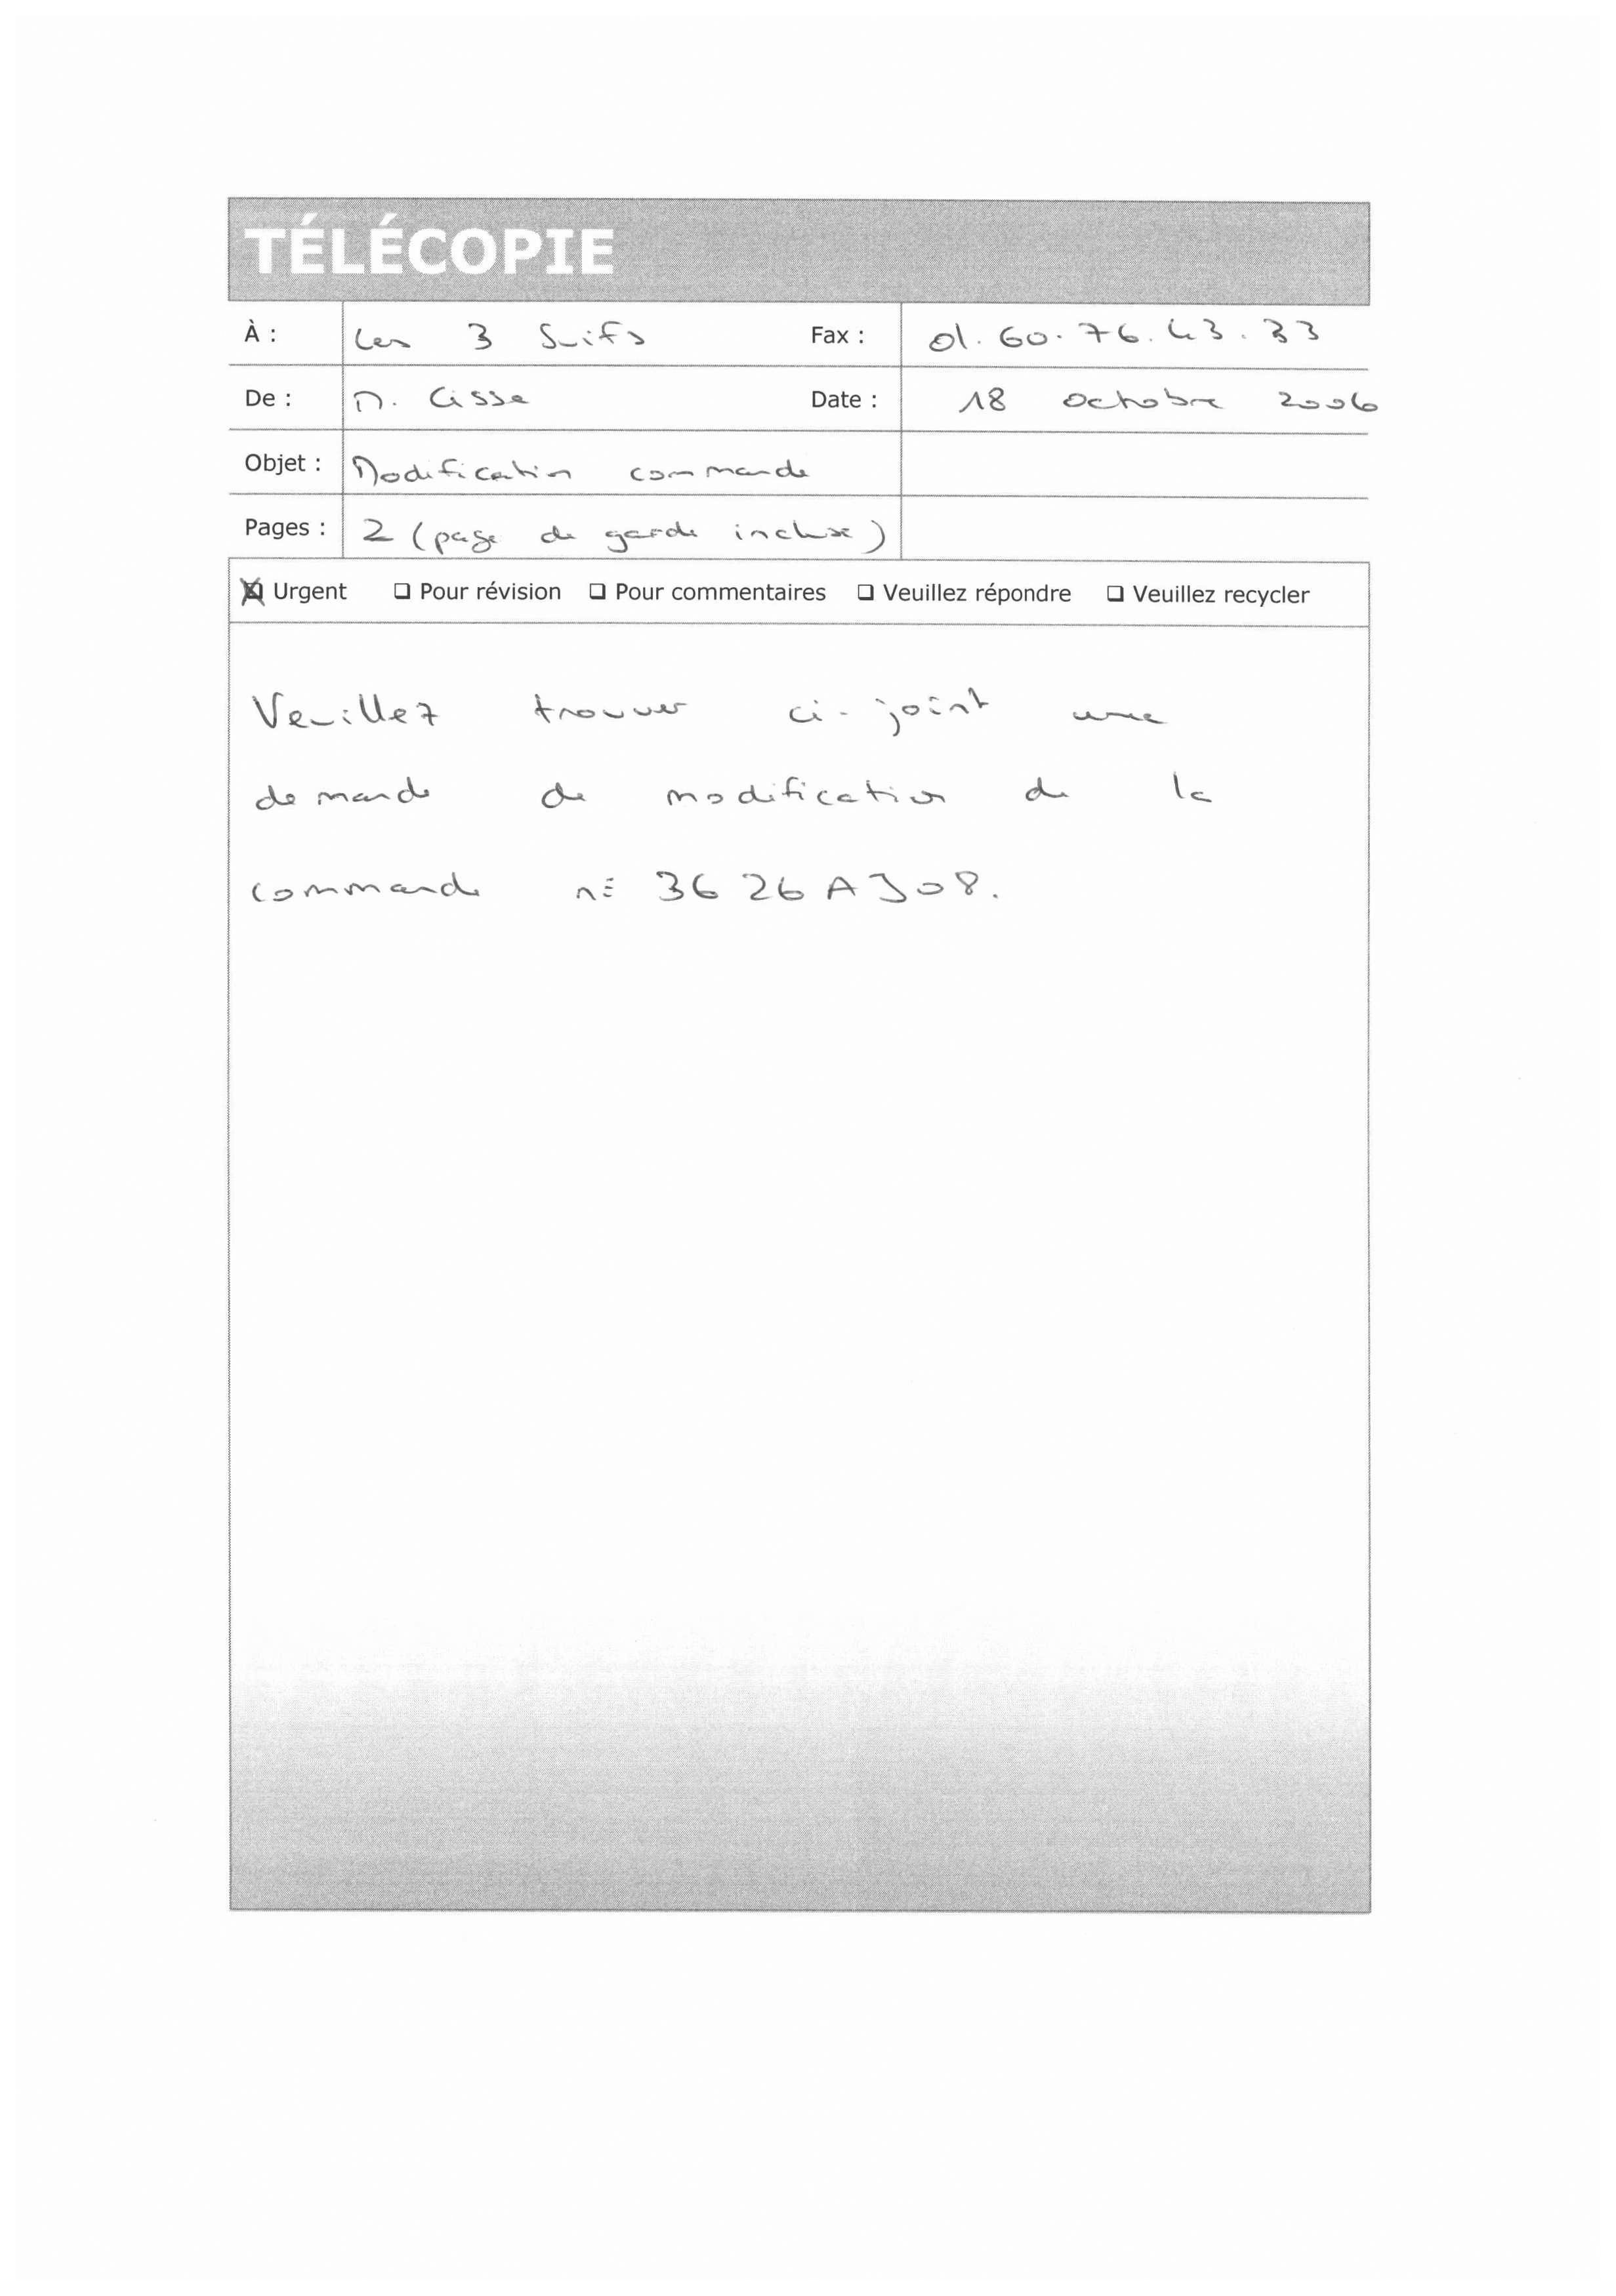 TÉLÉCOPIE
À : Les 3 Suifs Fax : 01.60.76.43.33
De : M. Cisse Date : 18 octobre 2006
Objet : Modification commande
Pages : 2 (page de garde incluse)
Urgent Pour révision Pour commentaires Veuillez répondre Veuillez recycler
Veuillez trouver ci-joint une
demande de modification de la
commande n° 3626AJ08.